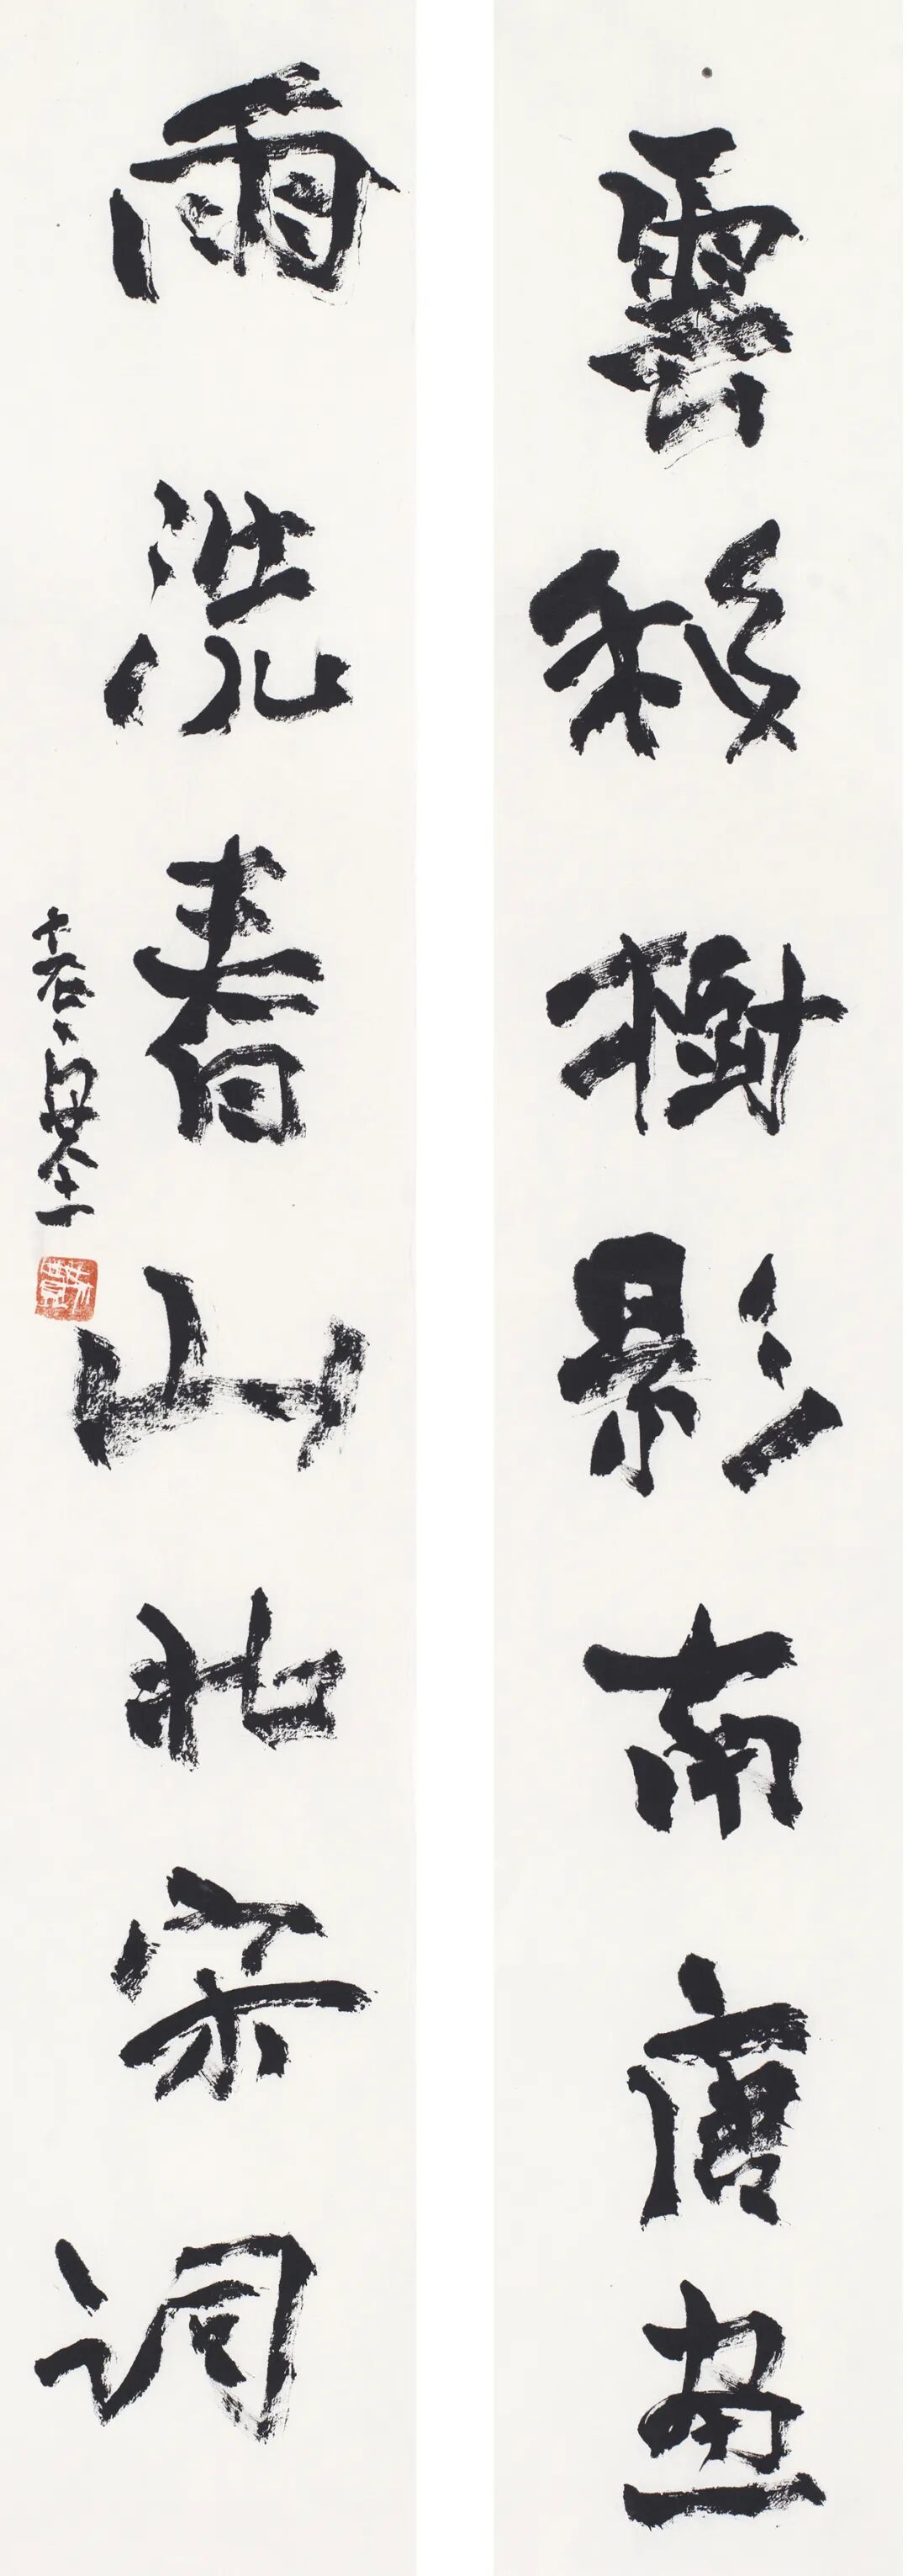 雲移樹影南唐畫
雨洗春山北宋詞